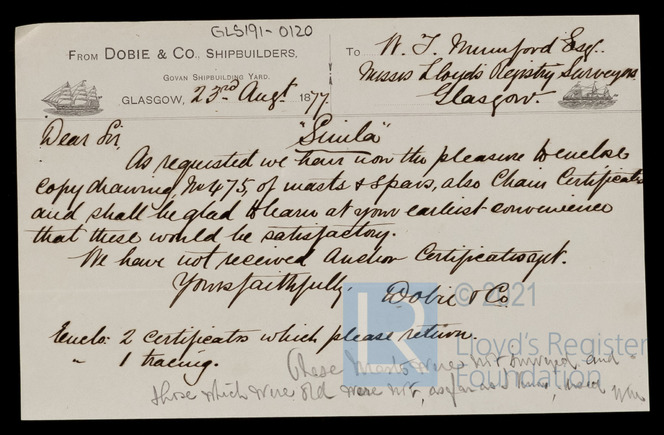 GLS191-0120
FROM DOBIE & CO., SHIPBUILDERS,
GOVAN SHIPBUILDING YARD.
GLASGOW, 23rd Augt 1877.
TO W. T. Mumford Esq.
Messrs Lloyds Registry Surveyors
Glasgow.
Dear Sir, "Simla"
As requested we have now the pleasure to enclose
copy drawing, No 475, of masts & spars, also Chain Certificates
and shall be glad to learn at your earliest convenience
that these would be satisfactory.
We have not received Anchor Certificates yet.
Yours faithfully
Dobie & Co.
Enclo: 2 certificates which please return.
" 1 tracing.
These Masts were not and
those which were old were not, as far as I
LR
© 2021
Lloyd's Register
Foundation